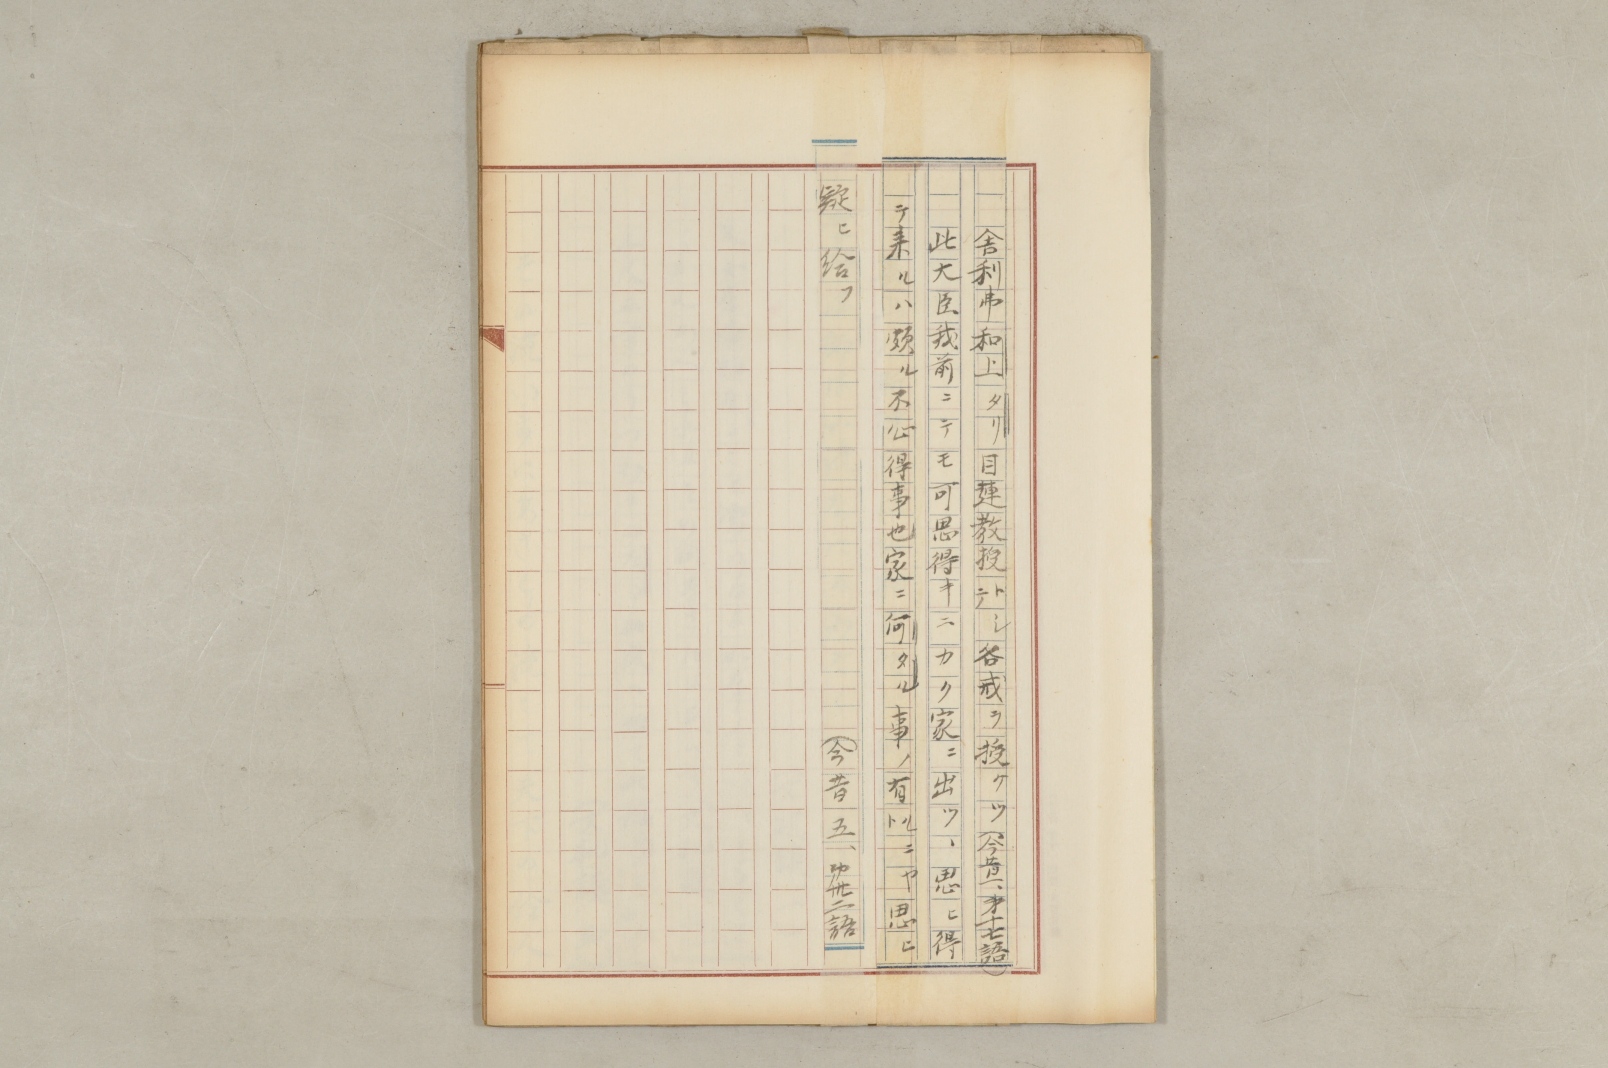 舎利弗和上タリ目連教授トシテ各戒ヲ授ケツ(今昔一、才十七語)
此大臣我前ニテモ可思得キニカク家ニ出ツヽ思ヒ得
テ来ルハ頗ル不心得事也家ニ何タル事ノ有ルニヤト思ヒ
疑ヒ給フ
(今昔五、才卅二語